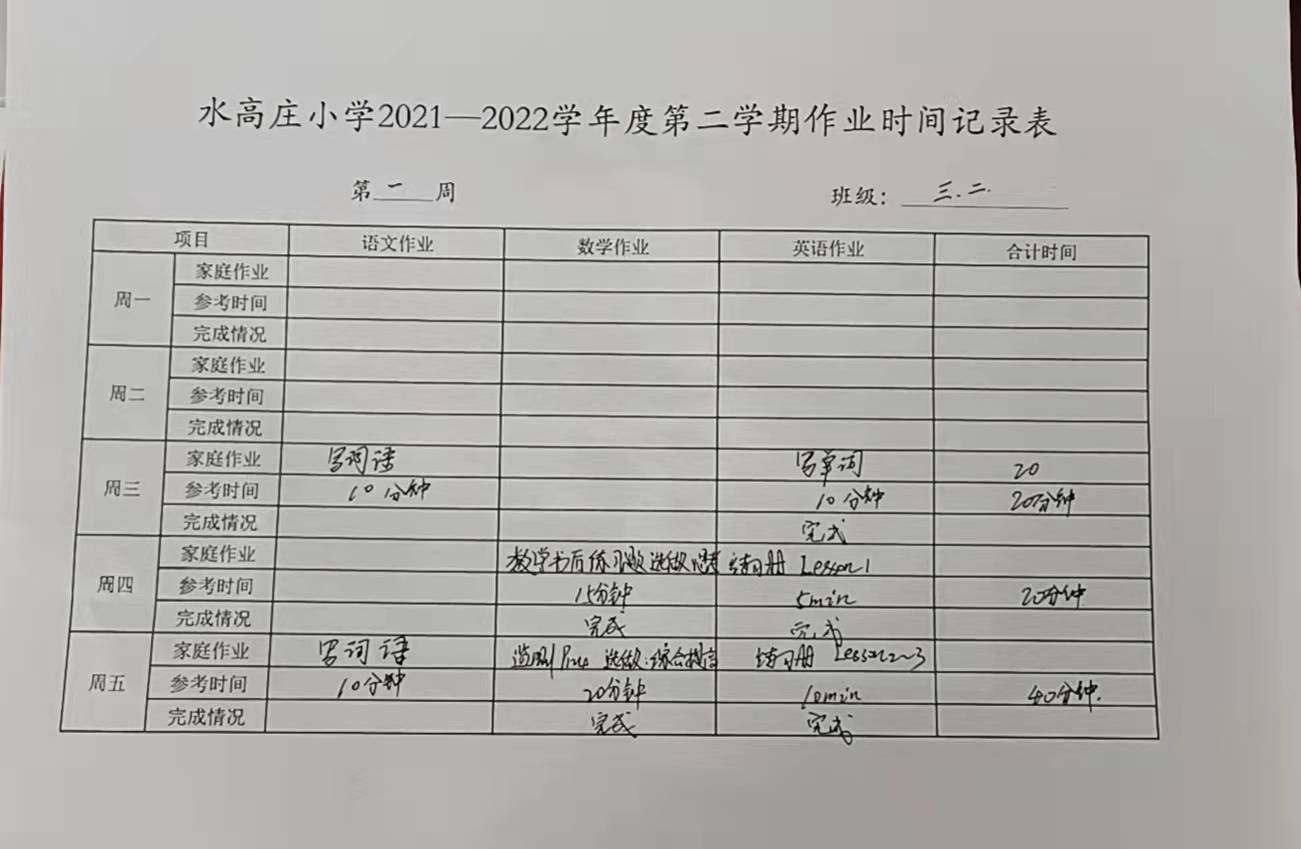 水高庄小学2021—2022学年度第二学期作业时间记录表
第一周 班级：三.二.
项目 语文作业 数学作业 英语作业 合计时间
周一
家庭作业
参考时间
完成情况
周二
家庭作业
参考时间
完成情况
周三
家庭作业 写词语 写单词 20
参考时间 10分钟 10分钟 20分钟
完成情况 完成
周四
家庭作业 数学书后练习题 选做 练习册 Lesson1
参考时间 15分钟 5min 20分钟
完成情况 完成 完成
周五
家庭作业 写词语 监测 选做:综合提高 练习册 Lesson2~3
参考时间 10分钟 20分钟 10min 40分钟.
完成情况 完成 完成